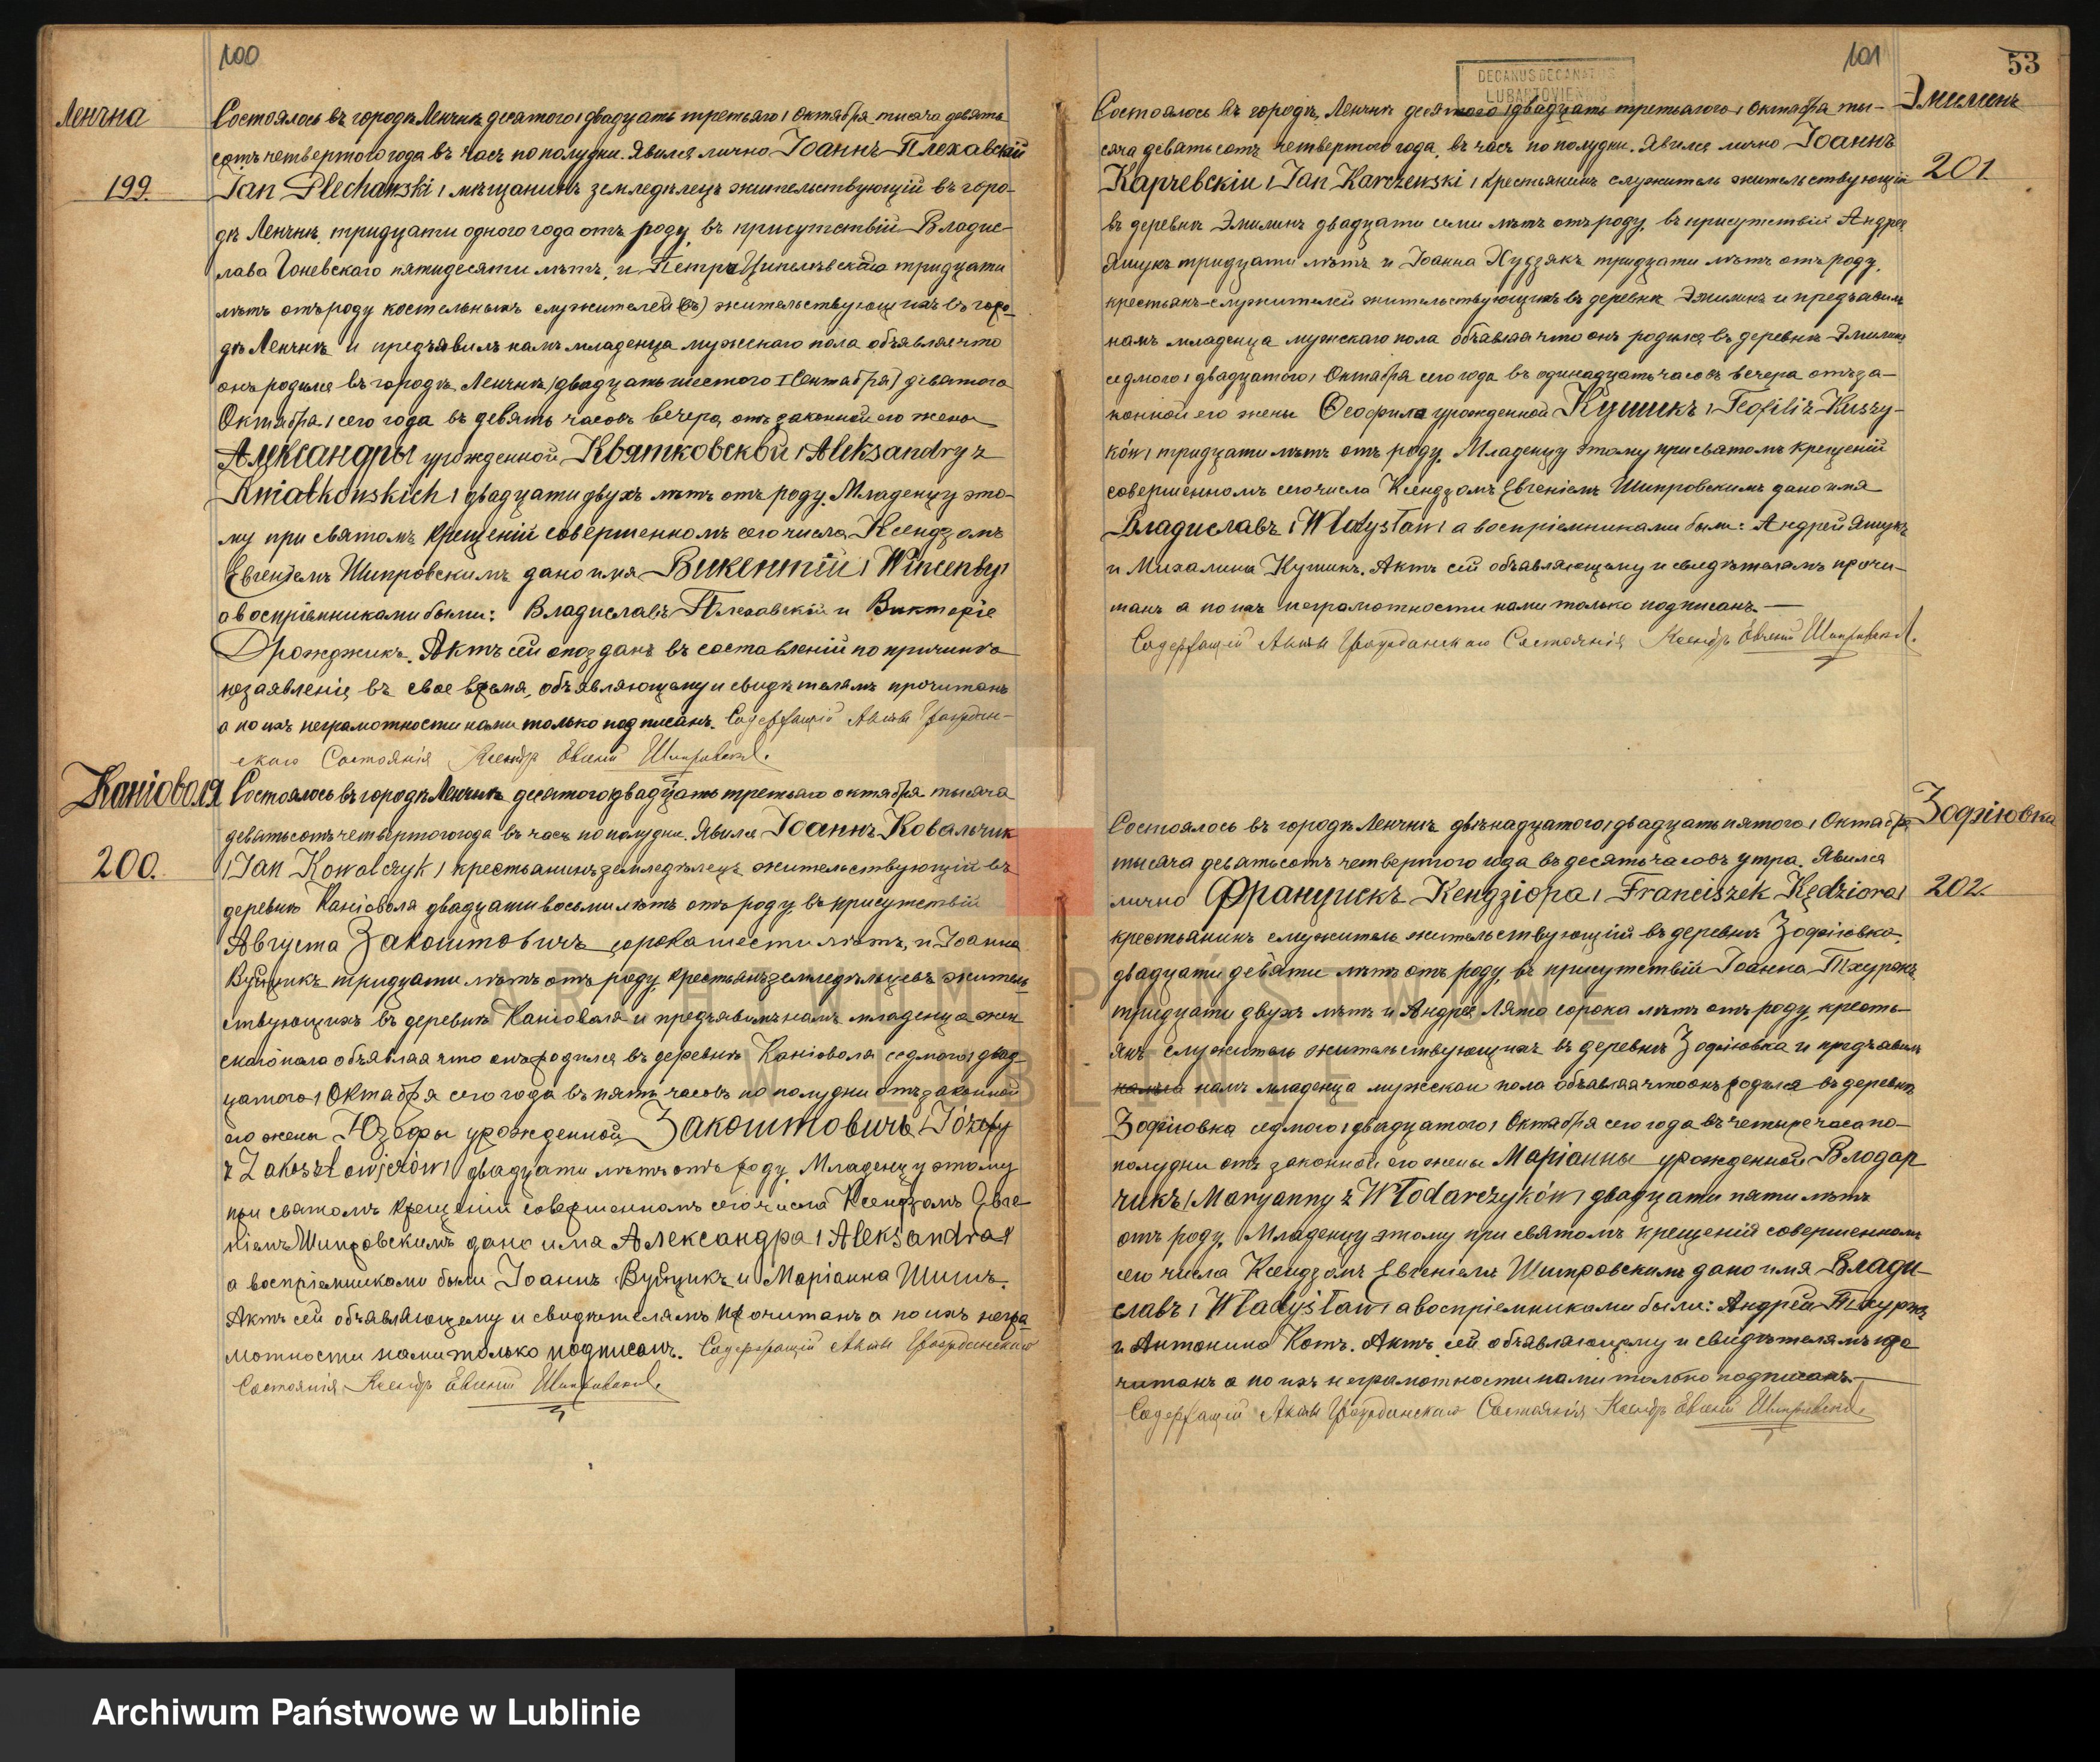 100
Ленчна
199.
Состоялось въ городѣ Ленчнѣ десятого (двадцать третьяго) Октября тисяча девять
сотъ четвертого года въ часъ по полудни. Явился лично Іоаннъ Плехавскій
Jan Plechawski) мѣщанинъ земледѣлецъ жительствующій въ горо-
дѣ Ленчнѣ, тридцати одного года отъ роду, въ присутствіи Владис-
лава Гоневскаго пятидесяти лѣтъ, и Петра тридцати
лѣтъ отъ роду костельныхъ служителей (въ) жительствующихъ въ горо-
дѣ Ленчнѣ и предъявилъ намъ младенца мужескаго пола объявляя что
онъ родился въ городѣ Ленчнѣ (двадцать шестого Сентября) девятого
Октября) сего года въ девять часовъ вечера, отъ законной его жены
Александры урожденной Квятковской (Aleksandry z
Kwiatkowskich) двадцати двухъ лѣтъ отъ роду. Младенцу это-
му при святомъ крещеніи совершенномъ сего числа Ксендзомъ
Евгеніемъ Шипровскимъ дано имя Викентій (Wincenty)
а воспріемниками были: Владиславъ Плехавскій и Викторіе
Дрожджикъ. Актъ сей опозданъ въ составленіи по причинѣ
незаявленіе въ свое время, объявляющему и свидѣтелямъ прочитанъ
а по ихъ неграмотности нами только подписанъ. Содержащій Акты Граждан-
скаго Состоянія Ксендзъ Евгеній Шипровскій.
Каніоволя
200.
Состоялось въ городѣ Ленчнѣ десятого (двадцать третьяго октября тысяча
девятьсотъ четвертого года въ часъ по полудни. Явился Іоаннъ Ковальчик
(Jan Kowalczyk) крестьянинъ земледѣлецъ жительствующій въ
деревнѣ Каніоволя двадцати восьми лѣтъ отъ роду, въ присутствіи
Августа Закоштовичъ сорока шести лѣтъ, и Іоанна
Вуйцикъ тридцати лѣтъ отъ роду, крестьянъ земледѣльцевъ житель
ствующихъ въ деревнѣ Каніоволя и предъявилъ намъ младенца жен
скаго пола объявляя что онъ родился въ деревнѣ Каніоволя седмого (двад-
цатого) Октября сего года въ пять часовъ по полудни отъ законной
его жены Юзефы урожденной Закоштовичъ (Józefy
z Zakosztowiczów) двадцати лѣтъ отъ роду. Младенцу этому
при святомъ крещеніи совершенномъ сего числа Ксендзомъ Евге
ніемъ Шипровскимъ дано имя Александра (Aleksandra)
а воспріемниками были Іоаннъ Вуйцикъ и Маріанна Шишъ.
Актъ сей объявляющему и свидѣтелямъ прочитанъ а по ихъ негра-
мотности нами только подписанъ. Содержащій Акты Гражданскаго
Состоянія Ксендзъ Евгеній Шипровскій.
101
53
DECANUS DECANATUS
LUBARTOVIENSIS
Эмилинъ
201
Состоялось въ городѣ Ленчнѣ десятого (двадцать третьягого) Октября ты-
сяча девятьсотъ четвертого года, въ часъ по полудни. Явился лично Іоаннъ
Карчевскій (Jan Karczewski) крестьянинъ служитель жительствующій
въ деревнѣ Эмилинъ двадцати семи лѣтъ отъ роду, въ присутствіи Андрея
Яшукъ тридцати лѣтъ и Іоанна Худзякъ тридцати лѣтъ отъ роду,
крестьянъ-служителей жительствующихъ въ деревнѣ Эмилинъ и предъавилъ
намъ младенца мужскаго пола объавляя что онъ родился въ деревнѣ Эмилинъ
седмого (двадцатого) Октября сего года въ одинадцать часовъ вечера отъ за-
конной его жены Ѳеофила урожденной Кушикъ (Teofili z Kuszy-
ków) тридцати лѣтъ отъ роду. Младенцу этому при святомъ крещеніи
совершенномъ сего числа Ксендзомъ Евгеніемъ Шипровскимъ дано имя
Владиславъ (Władysław) а воспріемниками были: Андрей Яшукъ
и Михалина Кушикъ. Актъ сей объавляющему и свидѣтелямъ прочи-
танъ а по ихъ неграмотности нами только подписанъ.—
Содержащій Акты Гражданскаго Состоянія Ксендзъ Евгеній Шипровскій.
Зофіювка
202.
Состоялось въ городѣ Ленчнѣ двѣнадцатого (двадцать пятого) Октября
тысяча девятьсотъ четвертого года въ десять часовъ утра. Явился
лично Францискъ Кендзіора (Franciszek Kędziora)
крестьянинъ служитель жительствующій въ деревнѣ Зофіювка,
двадцати девяти лѣтъ отъ роду, въ присутствіи Іоанна Тхуржъ
тридцати двухъ лѣтъ и Андрея Лято сорока лѣтъ отъ роду, кресть-
янъ служитель жительствующихъ въ деревнѣ Зофіювка и предъавилъ
намъ младенца мужскои пола объавляя что онъ родился въ деревнѣ
Зофіювка седмого (двадцатого) Октября сего года въ четыре часа по-
полудни отъ законной его жены Маріанны урожденной Влодар
чикъ (Maryanny z Włodarczyków) двадцати пяти лѣтъ
отъ роду. Младенцу этому при святомъ крещенія совершенномъ
сего числа Ксендзомъ Евгеніемъ Шипровскимъ дано имя Влади-
славъ (Władysław) а воспріемниками были: Андрей Тхуржъ
и Антонина Котъ. Актъ сей объавляющему и свидѣтелямъ про
читанъ а по ихъ неграмотности нами только подписанъ.—
Содержащій Акты Гражданскаго Состоянія Ксендзъ Евгеній Шипровскій.
ARCHIWUM PAŃSTWOWE
W LUBLINIE
Archiwum Państwowe w Lublinie